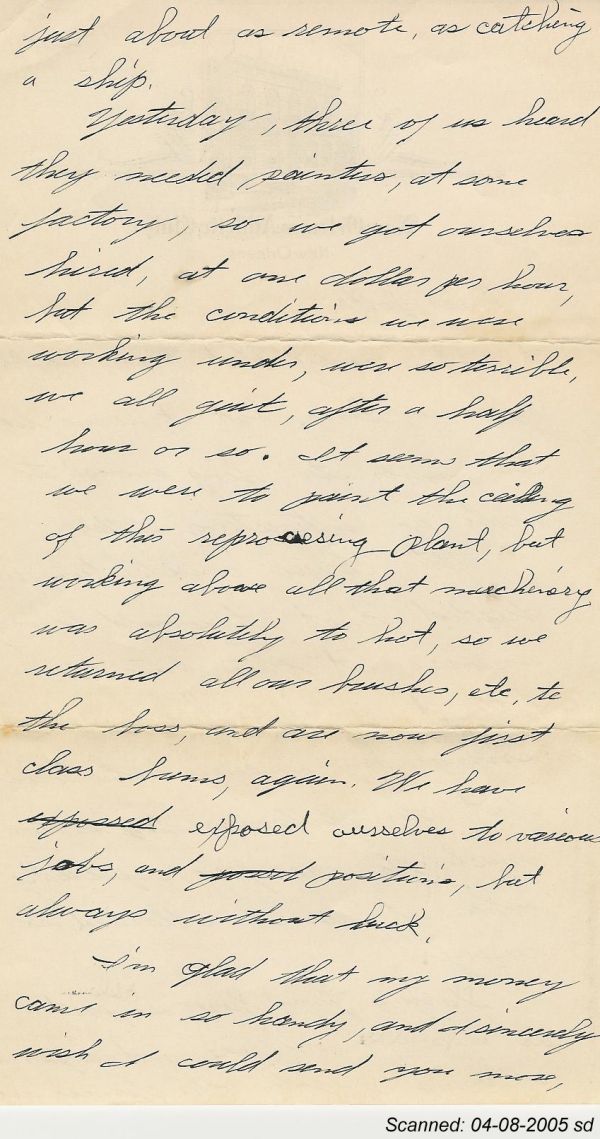 just about as remote, as catching
a ship.
Yesterday, three of us heard
they needed painters, at some
factory, so we got ourselves
hired, at one dollar per hour,
but the conditions we were
working under, were so terrible,
we all quit, after a half
hour or so. It seems that
we were to paint the ceiling
of this reprocessing plant, but
working above all that machinery
was absolutely to hot, so we
returned all our brushes, etc, to
the boss, and are now first
class bums, again. We have
exposed exposed ourselves to various
jobs, and positions, but
always without luck.
I'm glad that my money
came in so handy, and I sincerely
wish I could send you more,
Scanned: 04-08-2005 sd